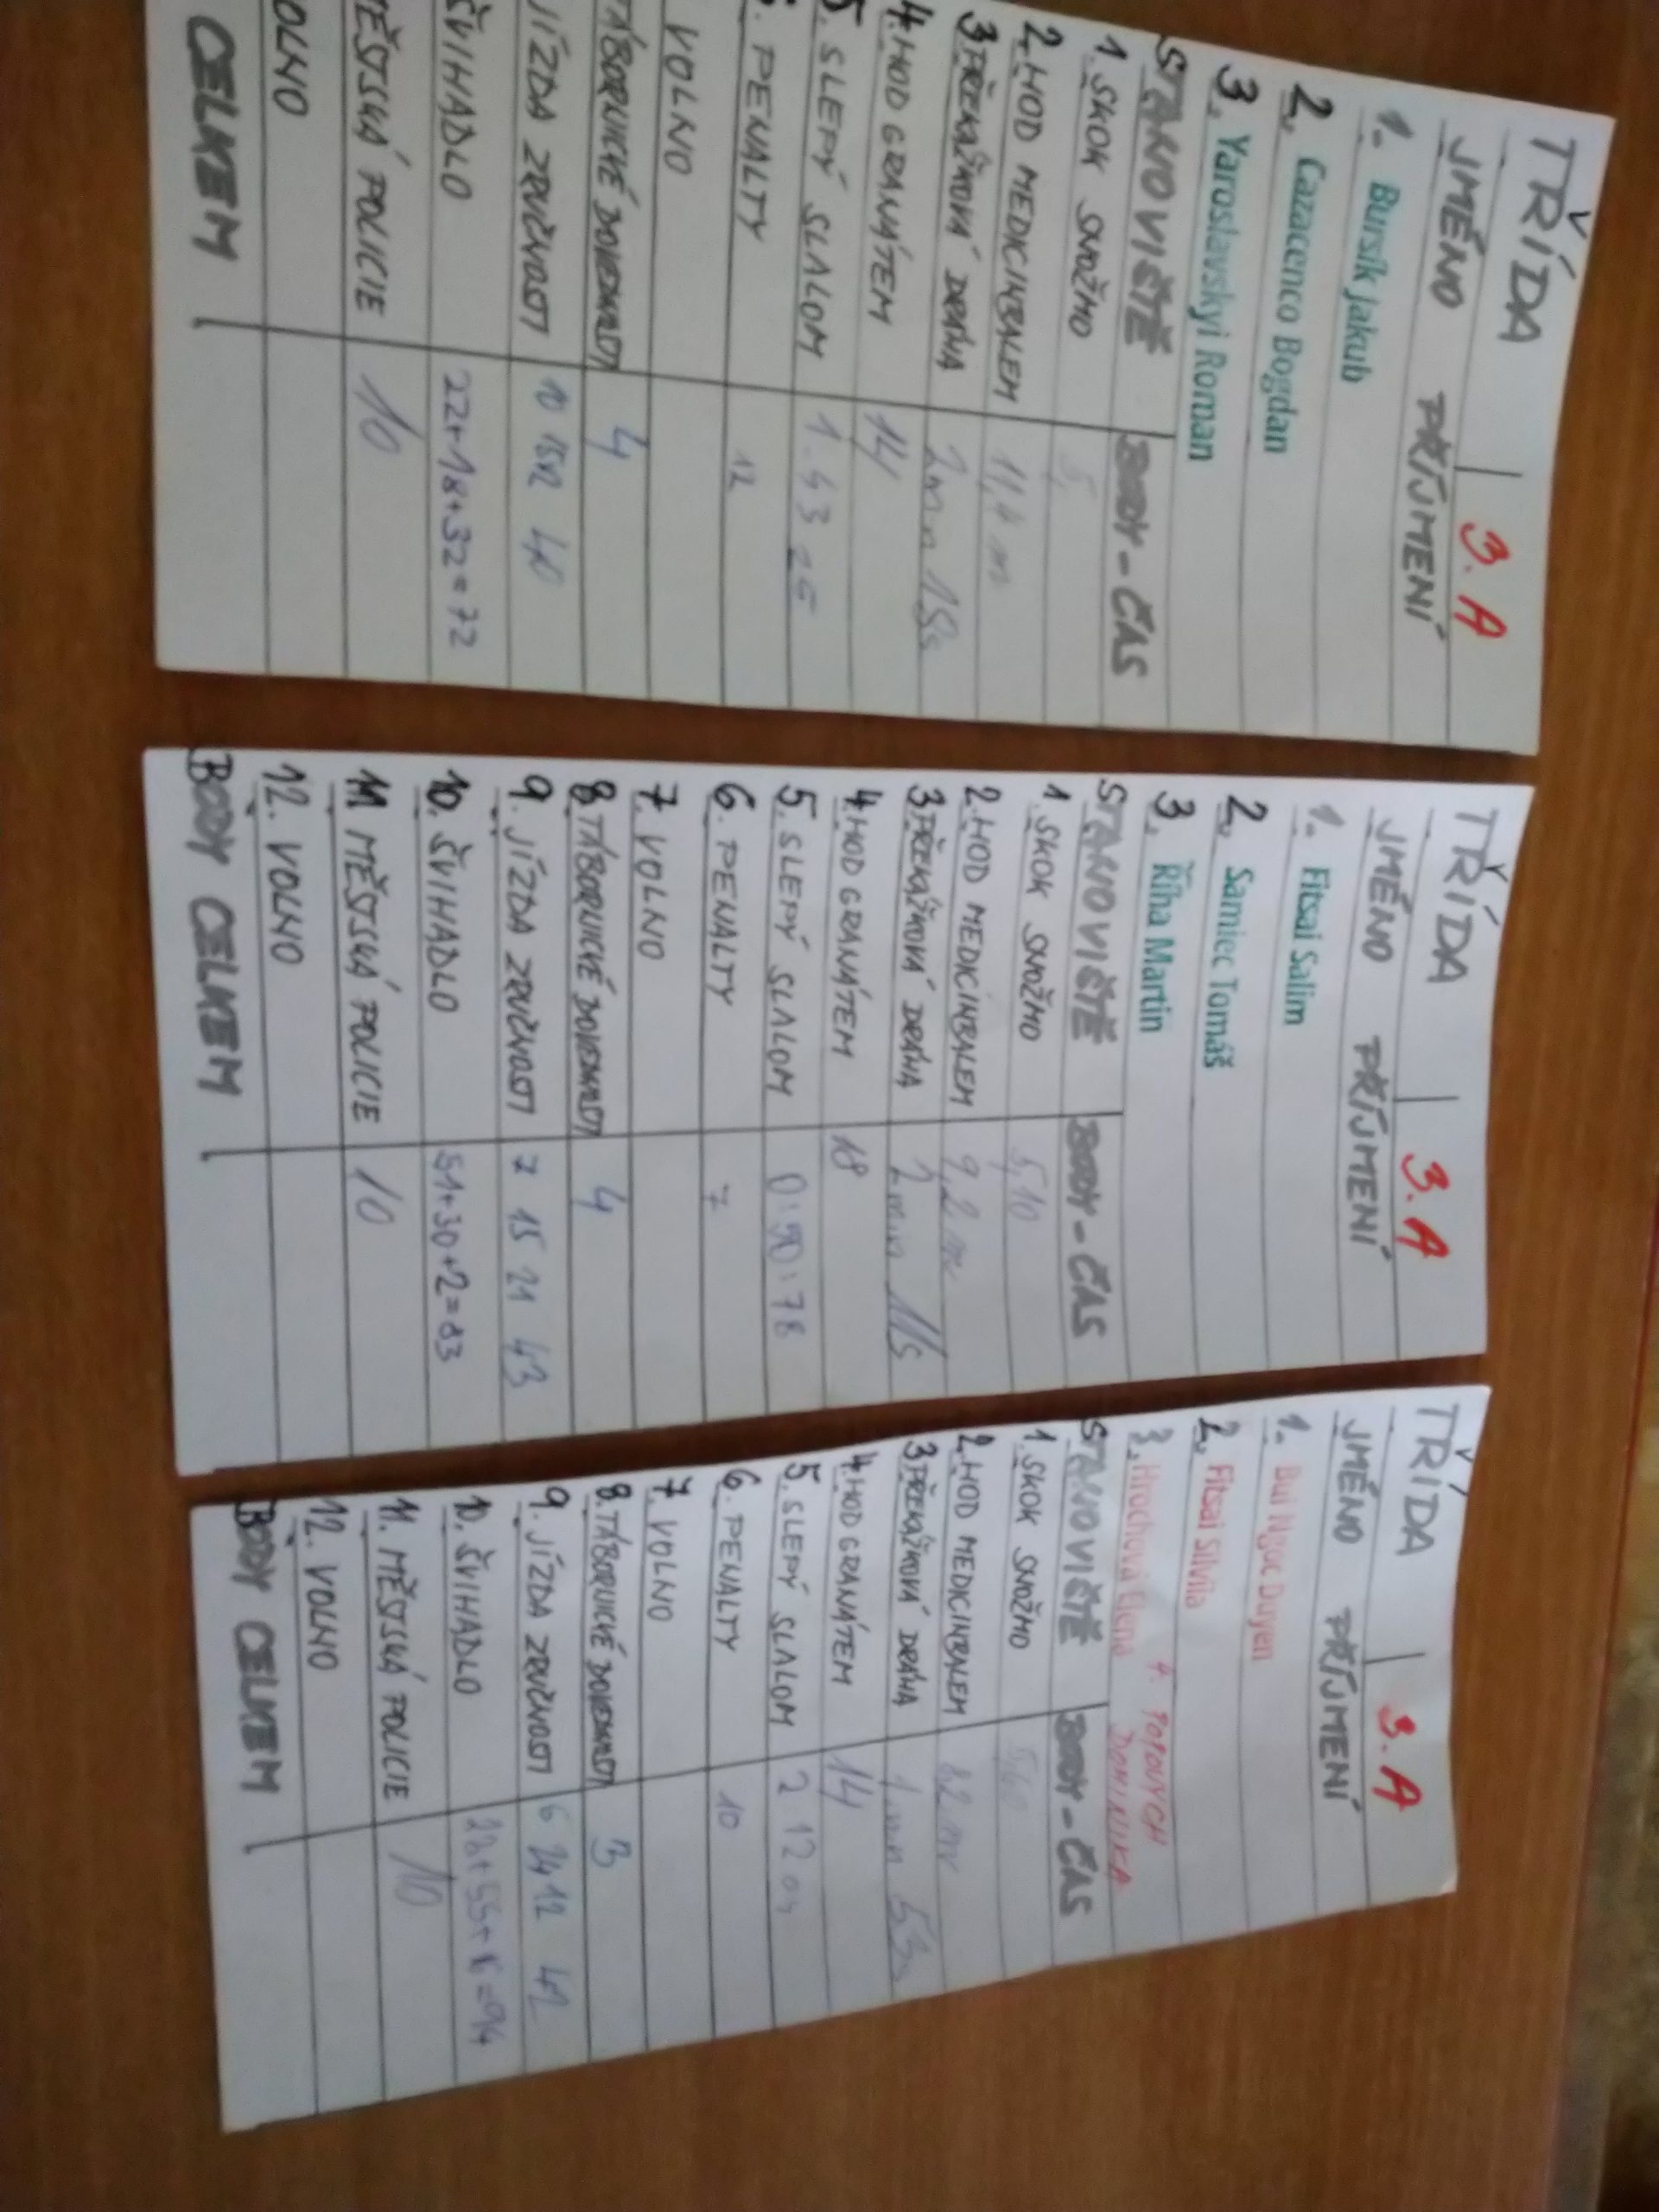 TŘÍDA 3. A
JMÉNO PŘÍJMENÍ
1. Bursík Jakub
2. Cazacenco Bogdan
3. Yaroslavskyi Roman
STANOVIŠTĚ BODY - ČAS
1. SKOK SNOŽMO 5,
2. HOD MEDICINBALEM 11,4 m
3. PŘEKÁŽKOVÁ DRÁHA 2 min 15s
4. HOD GRANÁTEM 14
5. SLEPÝ SLALOM 1. 43 25
6. PENALTY 12
VOLNO
TÁBORNICKÉ DOVEDNOSTI 4
JÍZDA ZRUČNOSTI 10 15 12 40
ŠVIHADLO 22+18+32=72
MĚSTSKÁ POLICIE 10
OLNO
CELKEM
TŘÍDA 3. A
JMÉNO PŘÍJMENÍ
1. Fitsai Salim
2. Samiec Tomáš
3. Říha Martin
STANOVIŠTĚ BODY - ČAS
1. SKOK SNOŽMO 5,10
2. HOD MEDICINBALEM 9,2 m
3. PŘEKÁŽKOVÁ DRÁHA 2 min 11s
4. HOD GRANÁTEM 18
5. SLEPÝ SLALOM 0:90:78
6. PENALTY 7
7. VOLNO
8. TÁBORNICKÉ DOVEDNOSTI 4
9. JÍZDA ZRUČNOSTI 7 15 21 43
10. ŠVIHADLO 51+30+2=83
11. MĚSTSKÁ POLICIE 10
12. VOLNO
BODY CELKEM
TŘÍDA 3. A
JMÉNO PŘÍJMENÍ
1. Bui Nguc Duyen
2. Fitsai Silvila
3. Hrochová Elena 4. POPOVYCH
DOMINIKA
STANOVIŠTĚ BODY - ČAS
1. SKOK SNOŽMO
2. HOD MEDICINBALEM 8,2 m
3. PŘEKÁŽKOVÁ DRÁHA 1 min 53s
4. HOD GRANÁTEM 14
5. SLEPÝ SLALOM 2 12 04
6. PENALTY 10
7. VOLNO
8. TÁBORNICKÉ DOVEDNOSTI 3
9. JÍZDA ZRUČNOSTI 6 24 12 42
10. ŠVIHADLO
11. MĚSTSKÁ POLICIE 10
12. VOLNO
BODY CELKEM